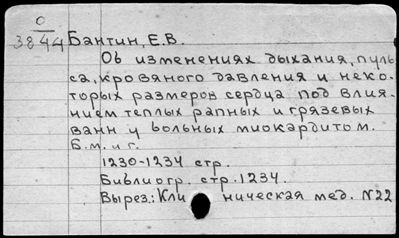 О
3844 Бантин, Е.В.
Об изменениях дыхания, пуль-
са, кровяного давления и неко-
торых размеров сердца под влия-
нием теплых рапных и грязевых
ванн у больных миокардитом.
Б.м. и г.
1230-1234 стр.
Библиогр. стр. 1234.
Вырез.: Кли ническая мед. N22